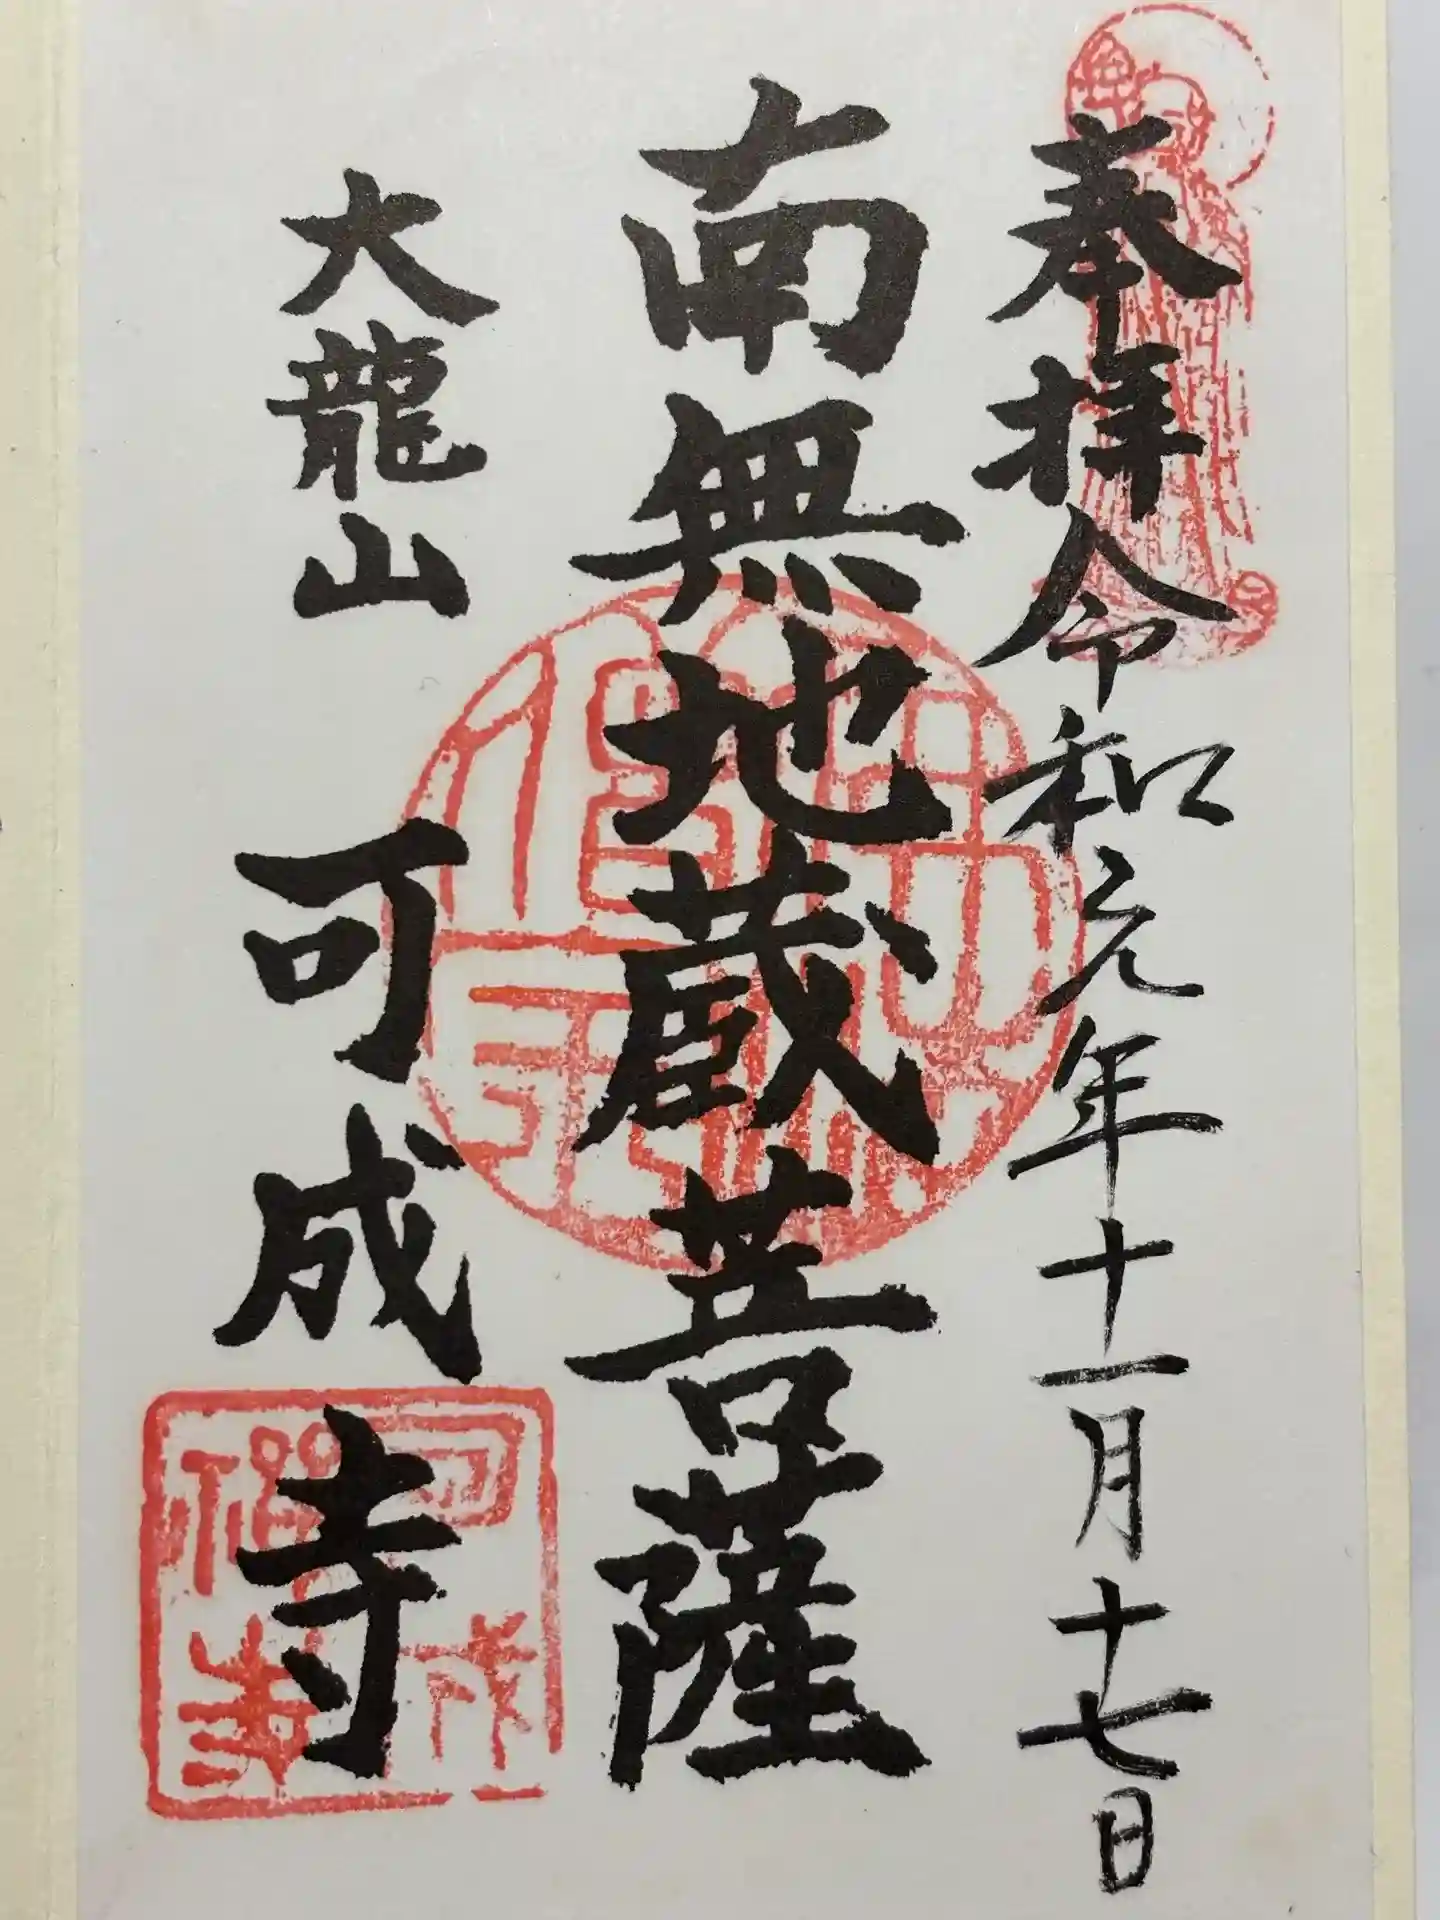 奉拝 令和元年十一月十七日
南無地蔵菩薩
大龍山
可成寺